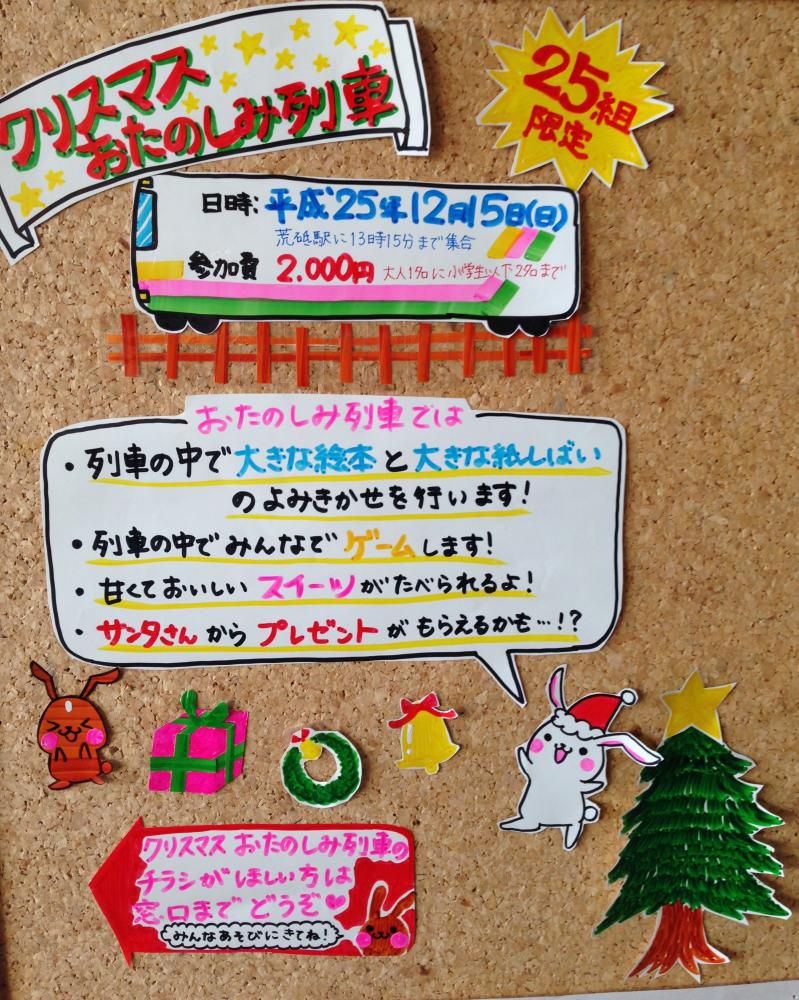 クリスマス
おたのしみ列車
25組
限定
日時:平成25年12月15日(日)
荒砥駅に13時15分まで集合
参加費 2.000円 大人1名に小学生以下2名まで
おたのしみ列車では
・列車の中で大きな絵本と大きな紙しばい
のよみきかせを行います!
・列車の中でみんなでゲームします!
・甘くておいしいスイーツがたべられるよ!
・サンタさんからプレゼントがもらえるかも…!?
クリスマスおたのしみ列車の
チラシがほしい方は
窓口までどうぞ♥
みんなあそびにきてね!